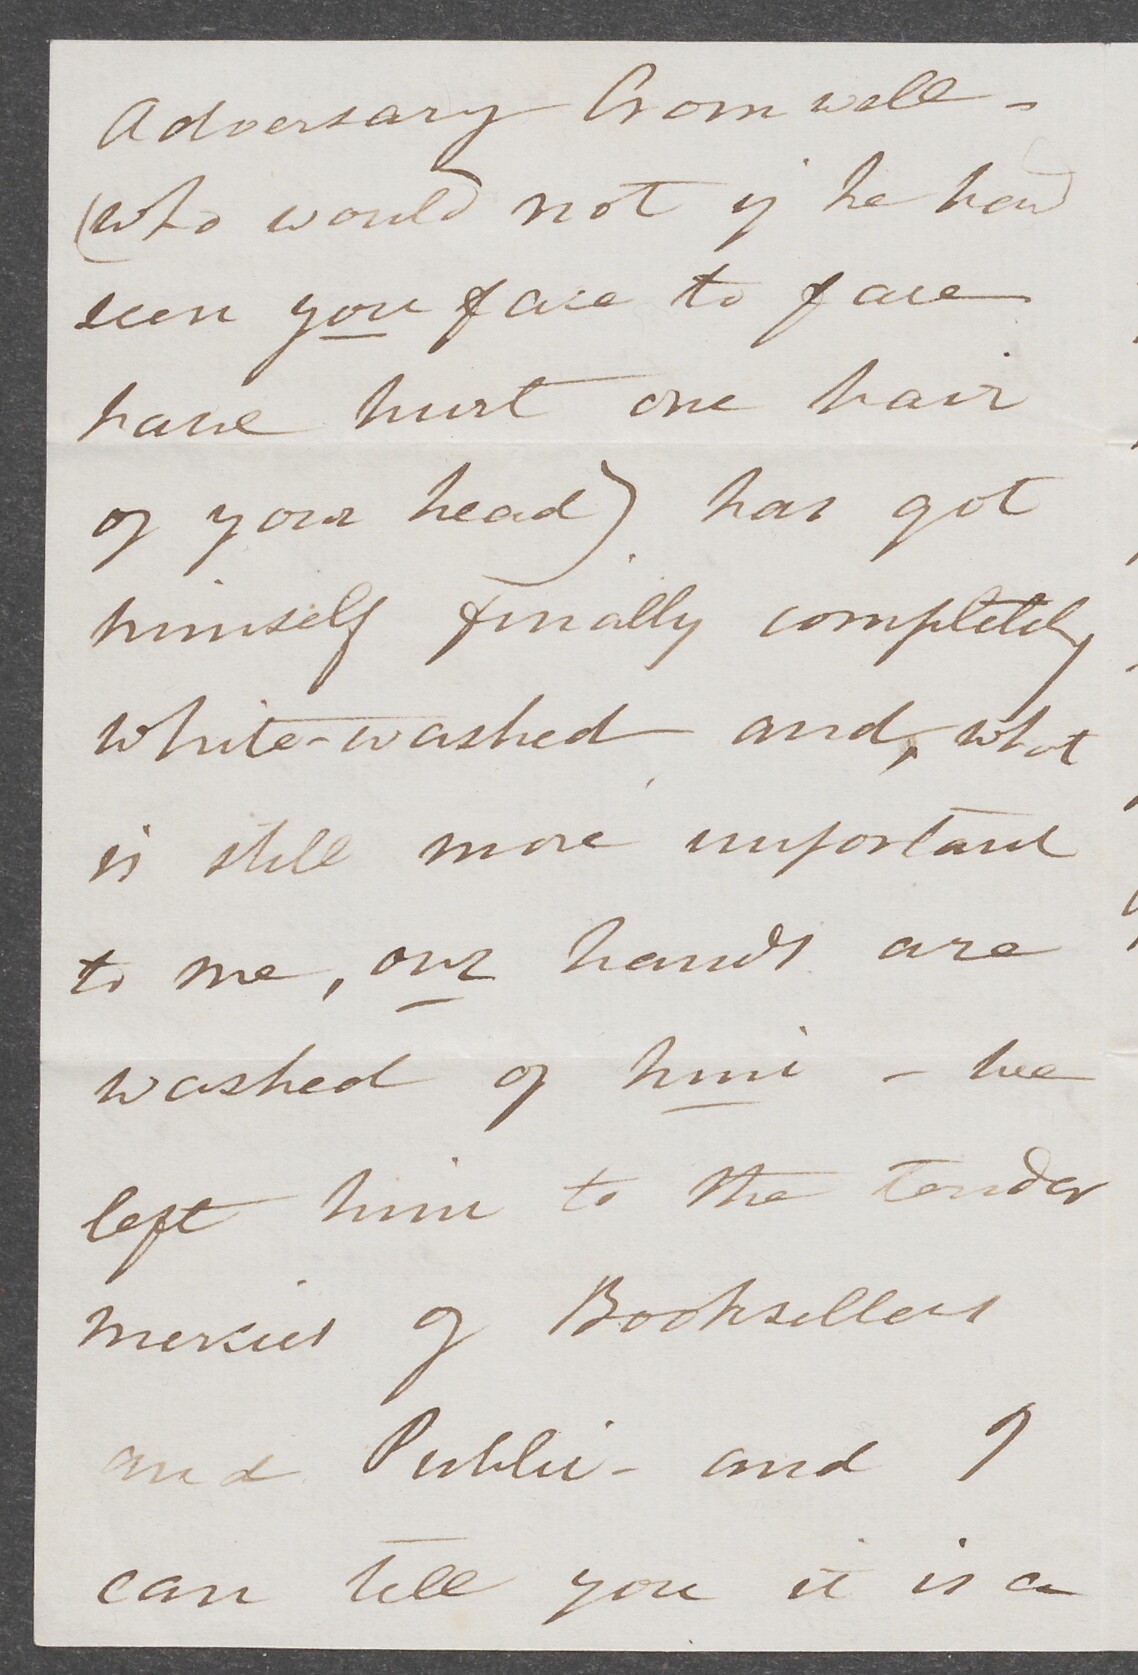 Adversary Cromwell -
(who would not if he had
seen you face to face
have hurt one hair
of your head) has got
himself finally completely
white-washed and, what
is still more important
to me, our hands are
washed of him - we
left him to the tender
mercies of Booksellers
and Public - and I
can tell you it is a